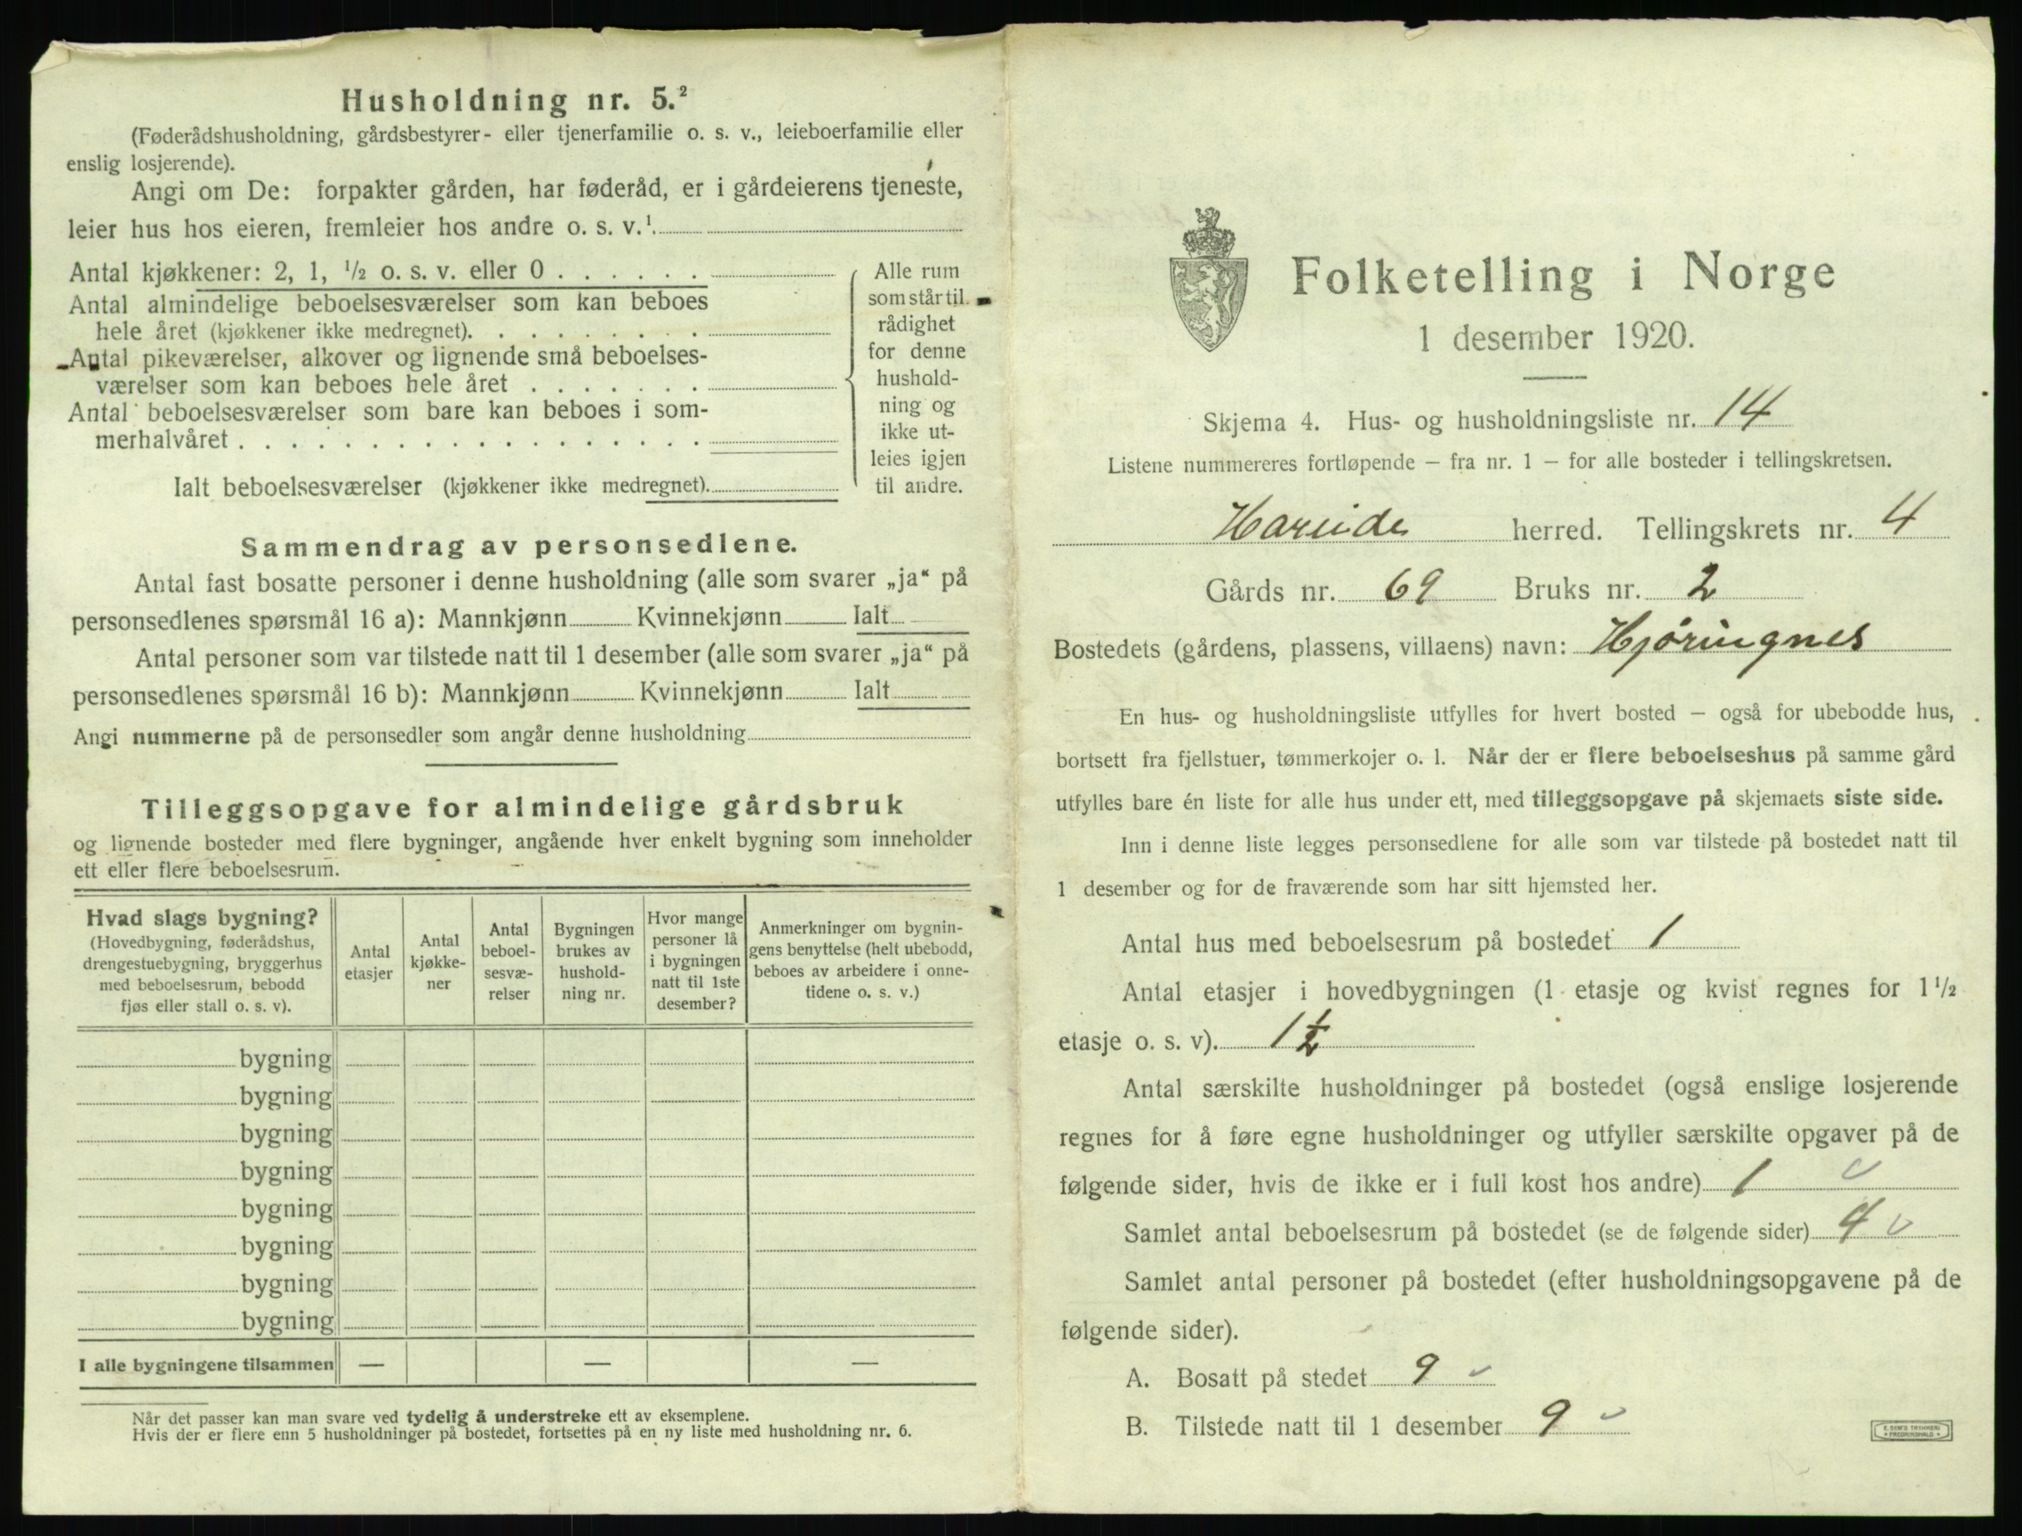 Husholdning nr. 5.²
(Føderådshusholdning, gårdsbestyrer- eller tjenerfamilie o. s. v., leieboerfamilie eller
enslig losjerende).
Angi om De: forpakter gården, har føderåd, er i gårdeierens tjeneste,
leier hus hos eieren, fremleier hos andre o. s. v.¹
Antal kjøkkener: 2, 1, ½ o. s. v. eller 0 . . . . . .
Antal almindelige beboelsesværelser som kan beboes
hele året (kjøkkener ikke medregnet). . . . . . . . .
Antal pikeværelser, alkover og lignende små beboelses-
værelser som kan beboes hele året . . . . . . .
Antal beboelsesværelser som bare kan beboes i som-
merhalvåret . . . . . . . . . . . . . . . . . .
Alle rum
som står til
rådighet
for denne
hushold-
ning og
ikke ut-
leies igjen
til andre.
Ialt beboelsesværelser (kjøkkener ikke medregnet).
Sammendrag av personsedlene.
Antal fast bosatte personer i denne husholdning (alle som svarer „ja“ på
personsedlenes spørsmål 16 a): Mannkjønn Kvinnekjønn Ialt
Antal personer som var tilstede natt til 1 desember (alle som svarer „ja“ på
personsedlenes spørsmål 16 b): Mannkjønn Kvinnekjønn Ialt
Angi nummerne på de personsedler som angår denne husholdning
Tilleggsopgave for almindelige gårdsbruk
og lignende bosteder med flere bygninger, angående hver enkelt bygning som inneholder
ett eller flere beboelsesrum.
Hvad slags bygning?
(Hovedbygning, føderådshus,
drengestuebygning, bryggerhus
med beboelsesrum, bebodd
fjøs eller stall o. s. v).
Antal
etasjer
Antal
kjøkke-
ner
Antal
beboel-
sesvæ-
relser
Bygningen
brukes av
hushold-
ning nr.
Hvor mange
personer lå
i bygningen
natt til 1ste
desember?
Anmerkninger om bygnin-
gens benyttelse (helt ubebodd,
beboes av arbeidere i onne-
tidene o. s. v.)
bygning
bygning
bygning
bygning
bygning
bygning
bygning
bygning
I alle bygningene tilsammen — — —
Når det passer kan man svare ved tydelig å understreke ett av eksemplene.
Hvis der er flere enn 5 husholdninger på bostedet, fortsettes på en ny liste med husholdning nr. 6.
Folketelling i Norge
1 desember 1920.
Skjema 4. Hus- og husholdningsliste nr. 14
Listene nummereres fortløpende — fra nr. 1 — for alle bosteder i tellingskretsen.
Hareide herred. Tellingskrets nr. 4
Gårds nr. 69 Bruks nr. 2
Bostedets (gårdens, plassens, villaens) navn: Hjøringnes
En hus- og husholdningsliste utfylles for hvert bosted — også for ubebodde hus,
bortsett fra fjellstuer, tømmerkojer o. l. Når der er flere beboelseshus på samme gård
utfylles bare én liste for alle hus under ett, med tilleggsopgave på skjemaets siste side.
Inn i denne liste legges personsedlene for alle som var tilstede på bostedet natt til
1 desember og for de fraværende som har sitt hjemsted her.
Antal hus med beboelsesrum på bostedet 1
Antal etasjer i hovedbygningen (1 etasje og kvist regnes for 1½
etasje o. s. v). 1½
Antal særskilte husholdninger på bostedet (også enslige losjerende
regnes for å føre egne husholdninger og utfyller særskilte opgaver på de
følgende sider, hvis de ikke er i full kost hos andre) 1
Samlet antal beboelsesrum på bostedet (se de følgende sider) 4
Samlet antal personer på bostedet (efter husholdningsopgavene på de
følgende sider).
A. Bosatt på stedet 9
B. Tilstede natt til 1 desember 9